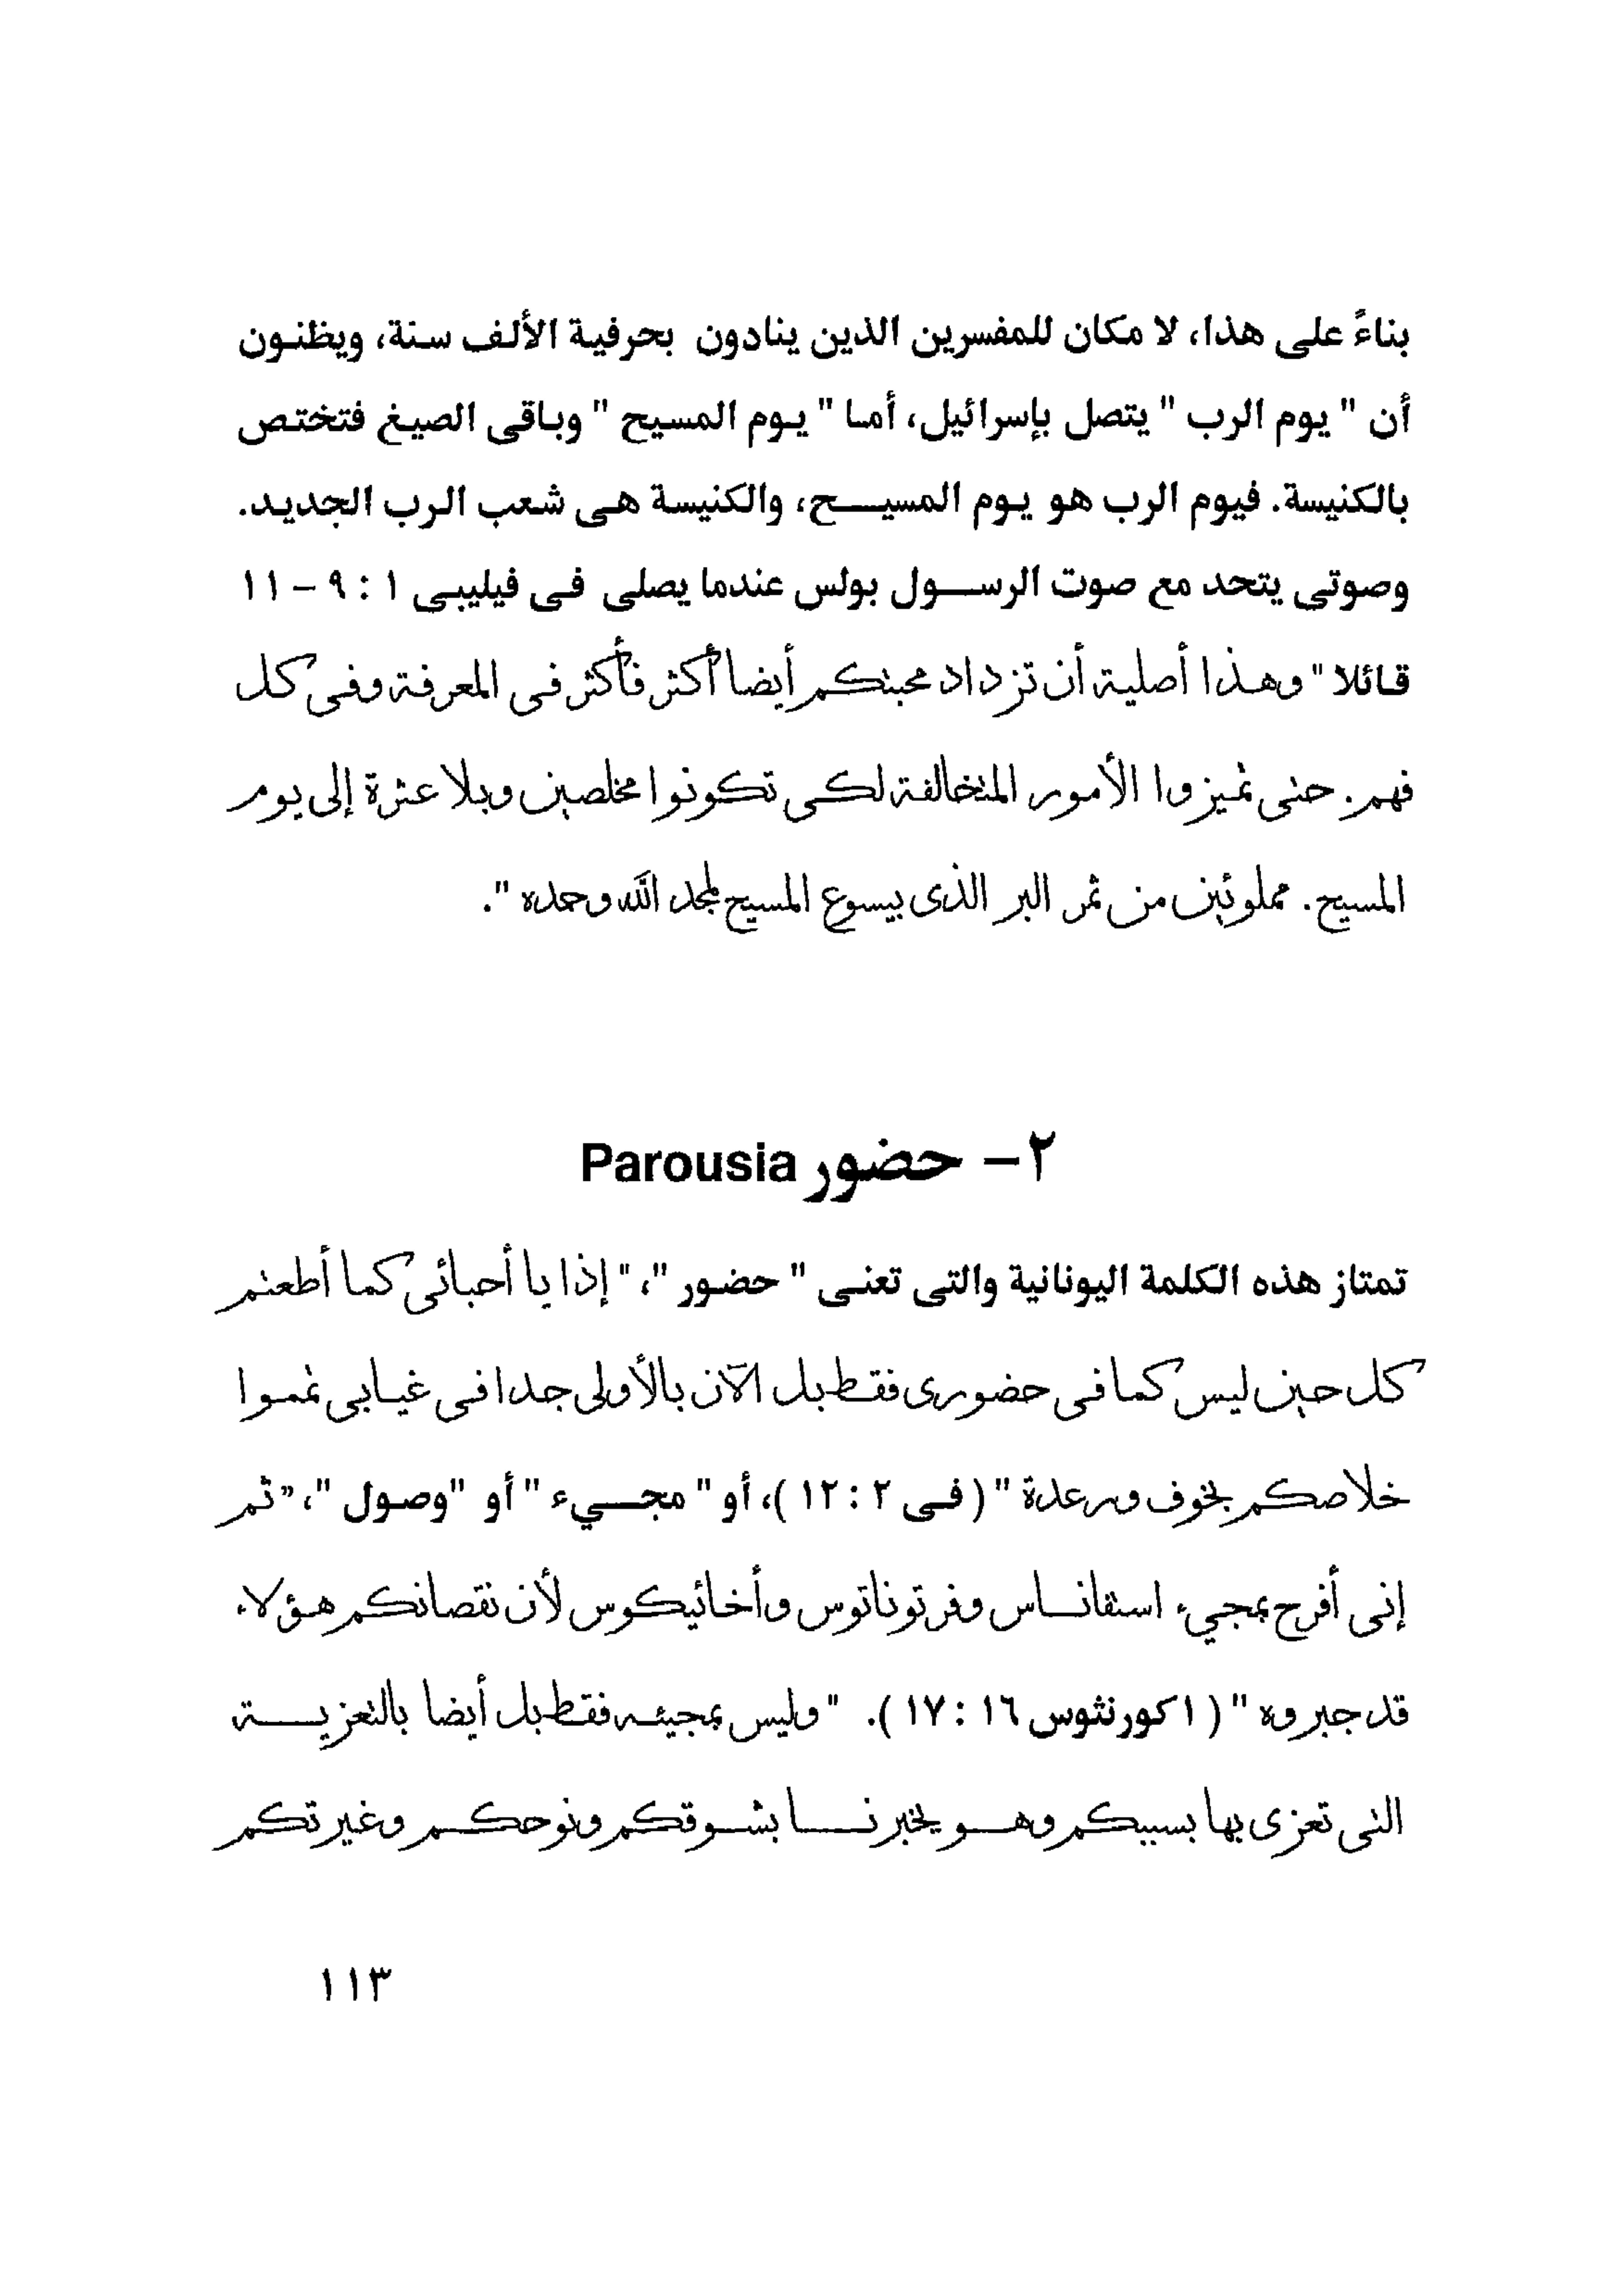 بناءً على هذا، لا مكان للمفسرين الذين ينادون بحرفية الألف سنة، ويظنون
أن " يوم الرب " يتصل بإسرائيل، أما " يوم المسيح " وباقى الصيغ فتختص
بالكنيسة. فيوم الرب هو يوم المسيح، والكنيسة هى شعب الرب الجديد.
وصوتى يتحد مع صوت الرسول بولس عندما يصلى فى فيليبى ١ : ٩ – ١١
قائلا " وهذا أصليه أن تزداد محبتكم أيضا أكثر فأكثر فى المعرفة وفى كل
فهم. حتى تميزوا الأمور المتخالفة لكى تكونوا مخلصين وبلا عثرة إلى يوم
المسيح. مملوئين من ثمر البر الذى بيسوع المسيح لمجد الله وحمده ".
٢ – حضور Parousia
تمتاز هذه الكلمة اليونانية والتى تعنى " حضور "، " إذا يا أحبائى كما أطعتم
كل حين ليس كما فى حضورى فقط بل الآن بالأولى جدا فى غيابى تمموا
خلاصكم بخوف ورعدة " ( فى ٢ : ١٢ )، أو " مجيء " أو "وصول "، " ثم
إنى أفرح بمجيء استفاناس وفرتوناتوس وأخائيكوس لأن نقصانكم هؤلاء
قد جبروه " ( ١كورنثوس ١٦ : ١٧ ). " وليس بمجيئه فقط بل أيضا بالتعزية
التى تعزى بها بسببكم وهو يخبرنا بشوقكم ونوحكم وغيرتكم
١١٣